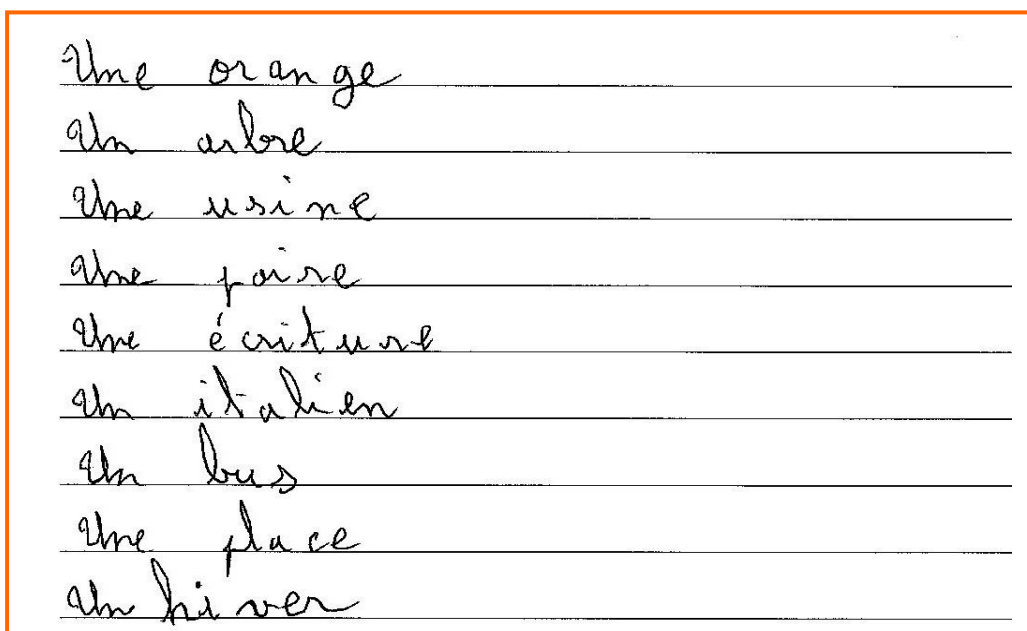 Une orange
Un arbre
Une usine
Une poire
Une écriture
Un italien
Un bus
Une place
Un hiver